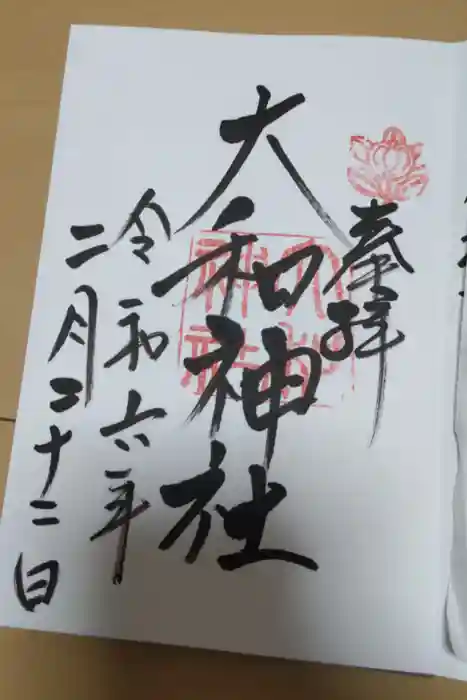 奉拝
大和神社
令和六年
二月二十二日
大和
神社